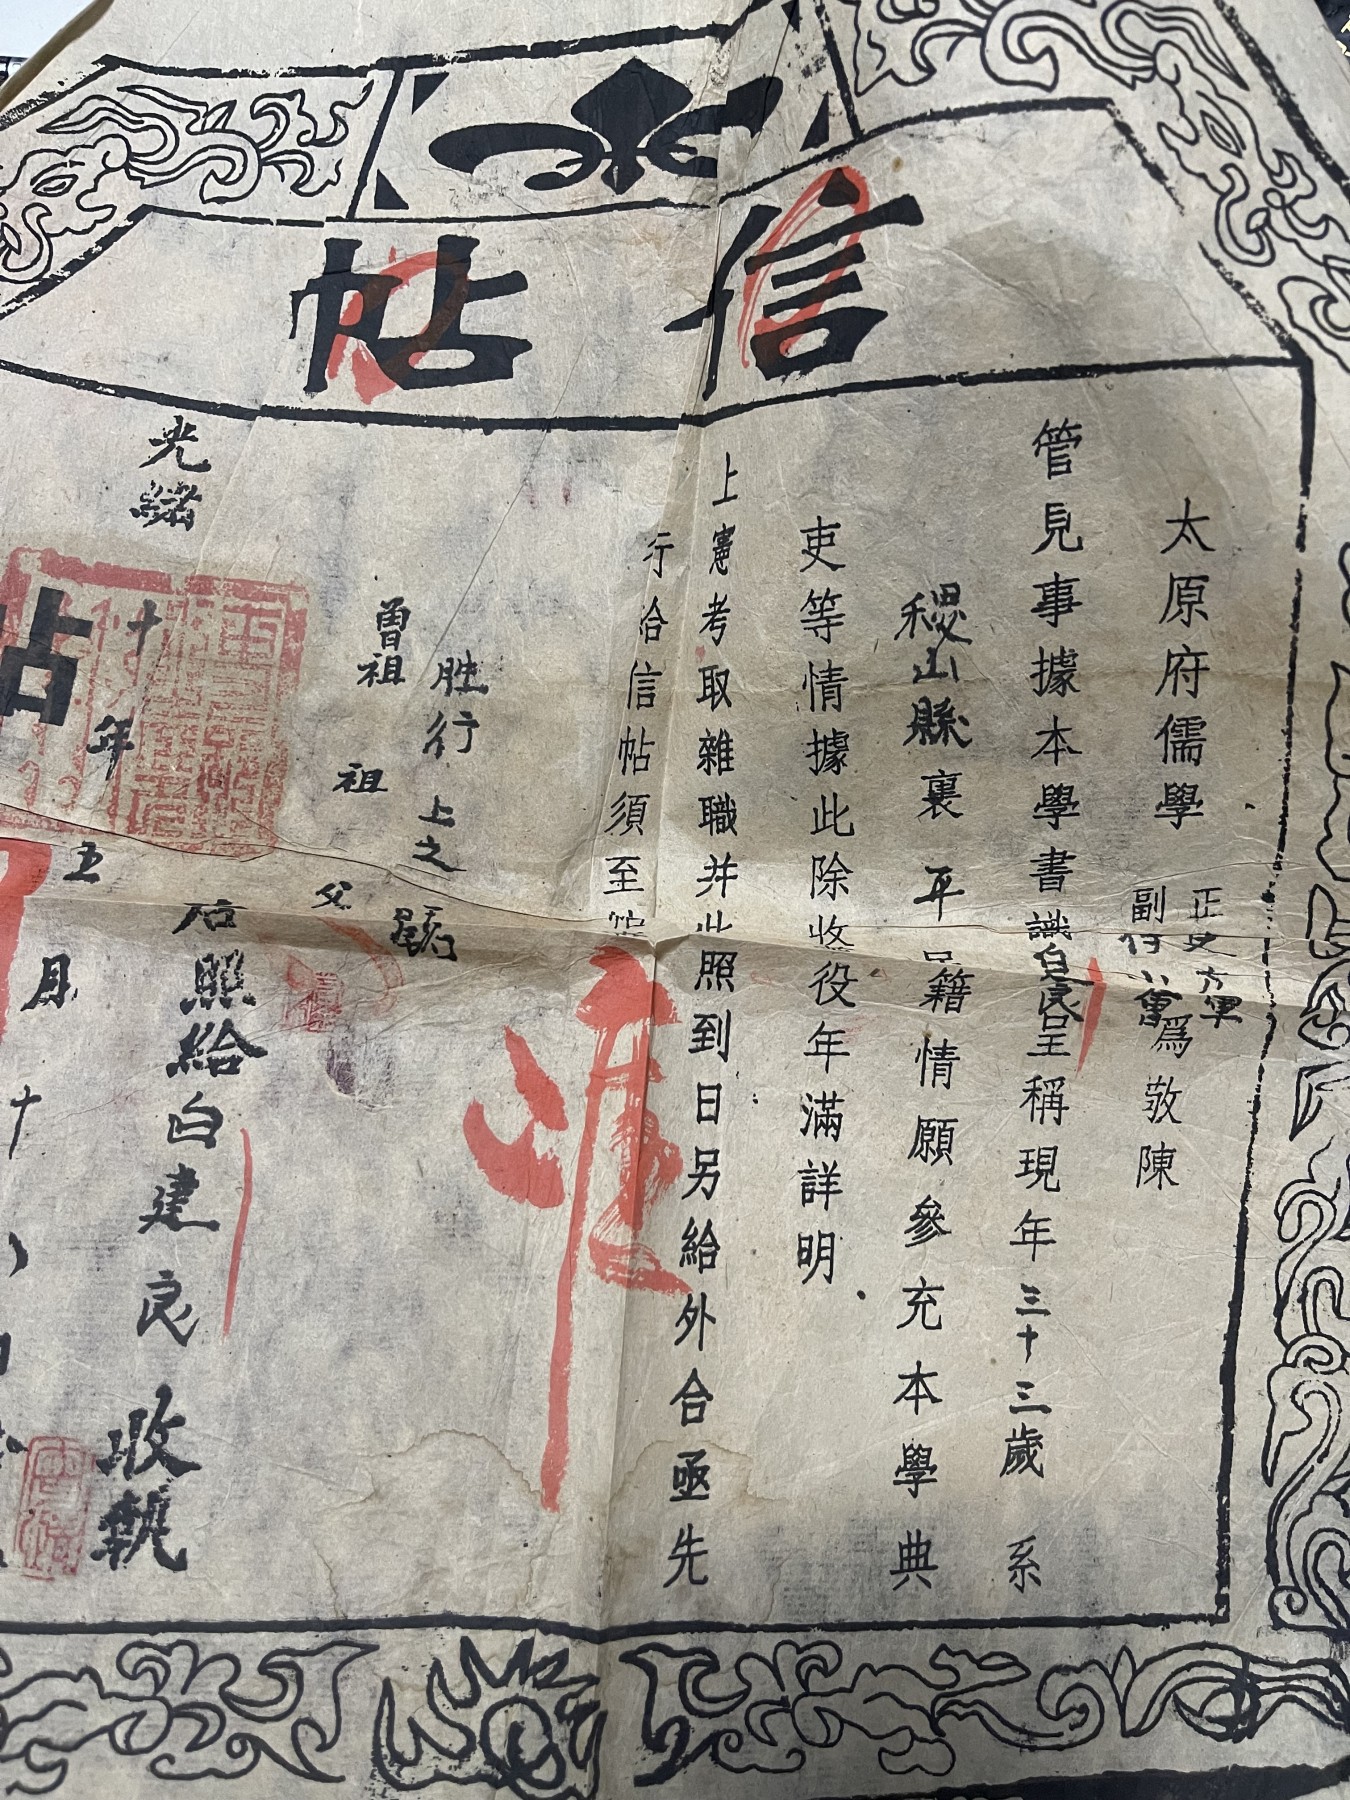 信帖
太原府儒學
正
副
為敬陳
管見事據本學書識白建良呈稱現年三十三歲 系
稷山縣裏 平民籍情願參充本學典
吏等情據此除收役年滿詳明
上憲考取雜職并此照到日另給外合亟先
行給信帖須至帖
胜行上之
曾祖
祖
父
右照給白建良收執
光緒
十
年
五
月
十
帖